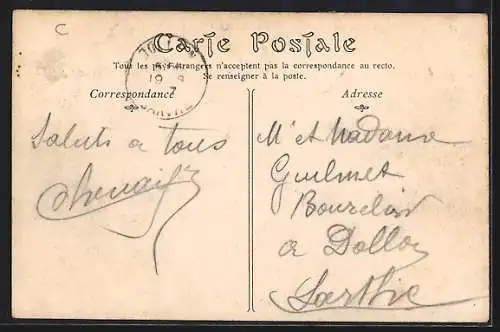 C
Carte Postale
Tous les pays étrangers n'acceptent pas la correspondance au recto.
Se renseigner à la poste.
Correspondance
Adresse
Saluts a tous
Mr et Madame
Guilmet
a Dollon
Sarthe